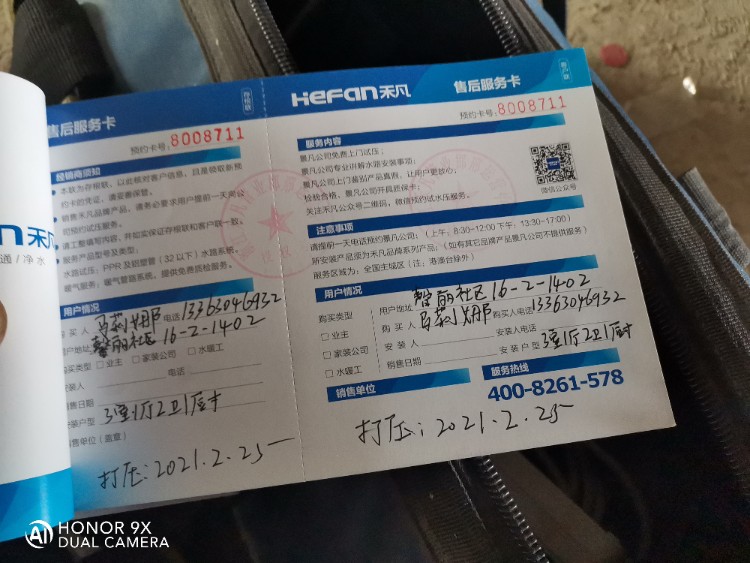 售后服务卡
存根联
预约卡号:8008711
经销商须知
本联为存根联,以此核对客户信息,且是领取新预
约卡的凭证,请妥善保管。
销售禾凡品牌产品,请务必要求用户提前一天向公
司预约试压服务。
请工整填写内容,并如实保证存根联和客户联一致。
服务产品型号及类型:
水路试压:PPR及铝塑管(32以下)水路系统。
暖气服务:暖气管路系统,提供免费质检服务。
用户情况
购买人 马莉娜 电话13363046932
用户地址 馨丽社区16-2-1402
购买类型 □业主 □家装公司 □水暖工
安装人 电话
销售日期
安装户型 3室1厅2卫1厨
销售单位(盖章)
打压:2021.2.25
an禾凡
通/净水
HeFan禾凡
售后服务卡
客户联
预约卡号:8008711
服务内容
景凡公司免费上门试压;
景凡公司专业讲解水路安装事项;
景凡公司上门鉴别产品真假,让用户更放心;
检验合格,景凡公司开具质保卡;
关注禾凡公众号二维码,微信预约试水压服务。
微信公众号
注意事项
请提前一天电话预约景凡公司:(上午:8:30-12:00 下午:13:30-17:00)
所安装产品须为禾凡品牌系列产品;(如有其它品牌产品景凡公司不提供服务)
服务区域为:全国主城区(注:港澳台除外)
用户情况
购买类型
□ 业主
□ 家装公司
□ 水暖工
用户地址 馨丽社区16-2-1402
购买人 马莉娜 购买人电话13363046932
安装人 安装人电话
销售日期 安装户型 3室1厅2卫1厨
销售单位
服务热线
400-8261-578
打压:2021.2.25
HONOR 9X
DUAL CAMERA